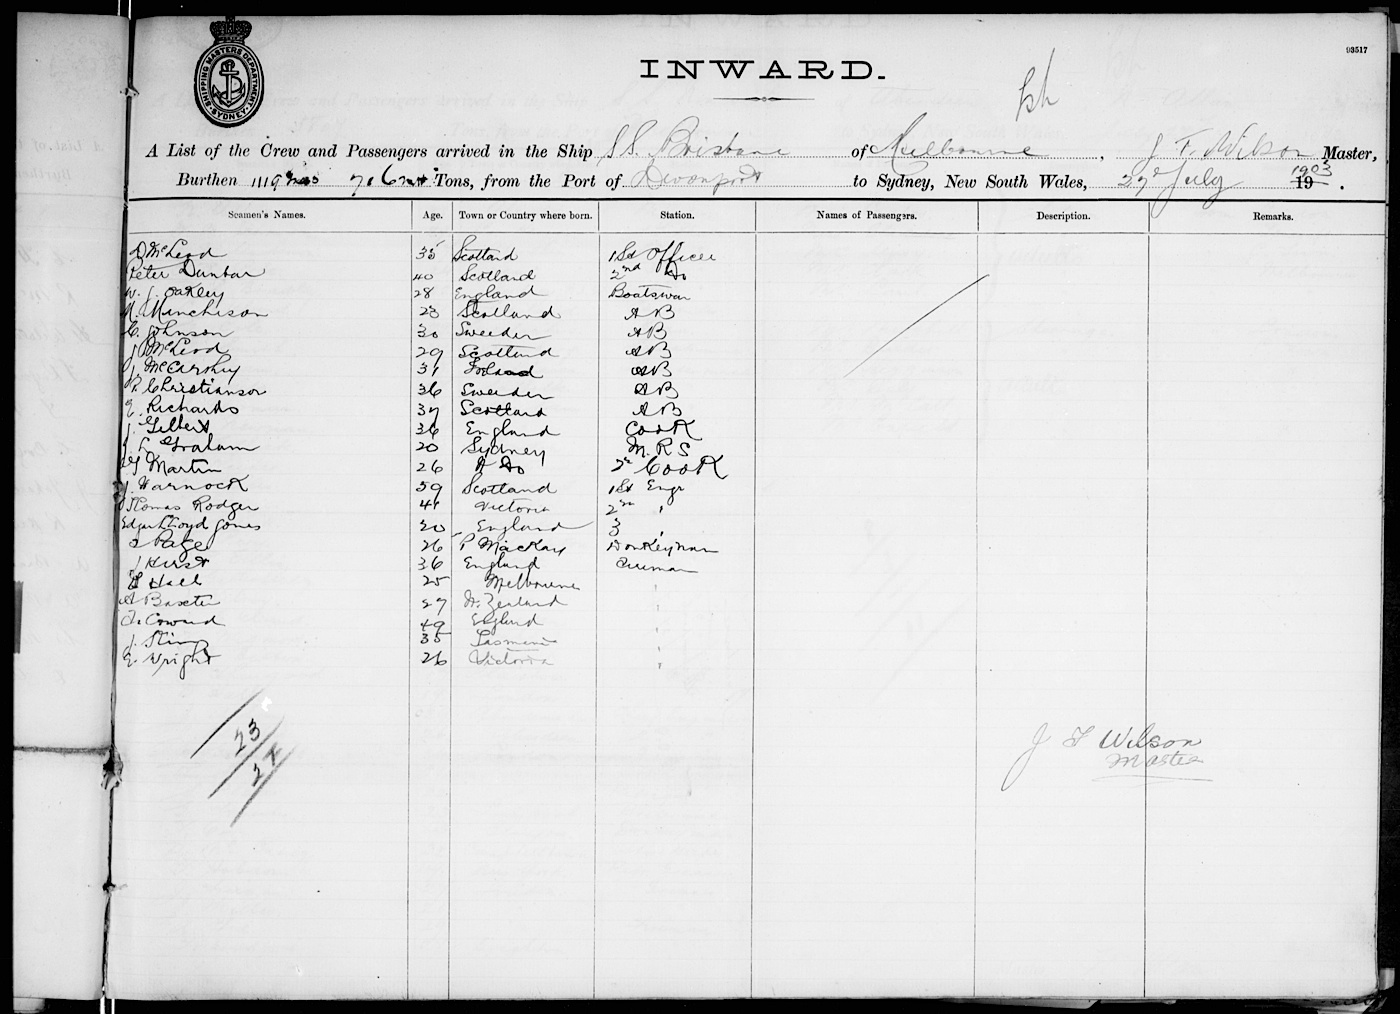 93517
SHIPPING MASTERS DEPARTMENT SYDNEY
INWARD.
A List of the Crew and Passengers arrived in the Ship S.S. Brisbane of Melbourne, J. F. Wilson Master,
Burthen 1119 706 Tons, from the Port of Devonport to Sydney, New South Wales, 27 July 1903.
Seamen's Names. Age. Town or Country where born. Station. Names of Passengers. Description. Remarks.
D McLeod 35 Scotland 1st Officer
Peter Dunbar 40 Scotland 2nd Do
W. J. Oakley 28 England Boatswan
Minchison 28 Scotland AB
C. Johnson 30 Sweeden AB
J McLeod 29 Scotland AB
J. McCarthy 31 AB
P. Christianson 36 Sweeden AB
Richards 37 Scotland AB
J. Gilbert 36 England Cook
J L Graham 20 Sydney M.R.S
Martin 26 Do 2nd Cook
J. Warnock 59 Scotland 1st Engr
Thomas Rodger 41 Victoria 2nd "
Edgar Lloyd Jones 30 England 3 "
Page 26 P MacKay Donkeyman
J Hirst 36 England
Hall 25 Melbourne "
A Baxter 27 N. Zealand "
Coward 49 England "
J. 35 Tasmania "
E. Wright 26 Victoria "
23
24
J F Wilson
Master